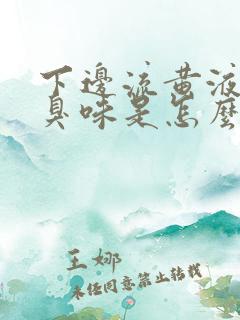 下邊流黃液
臭味是怎麼
王娜
未经同意禁止转载